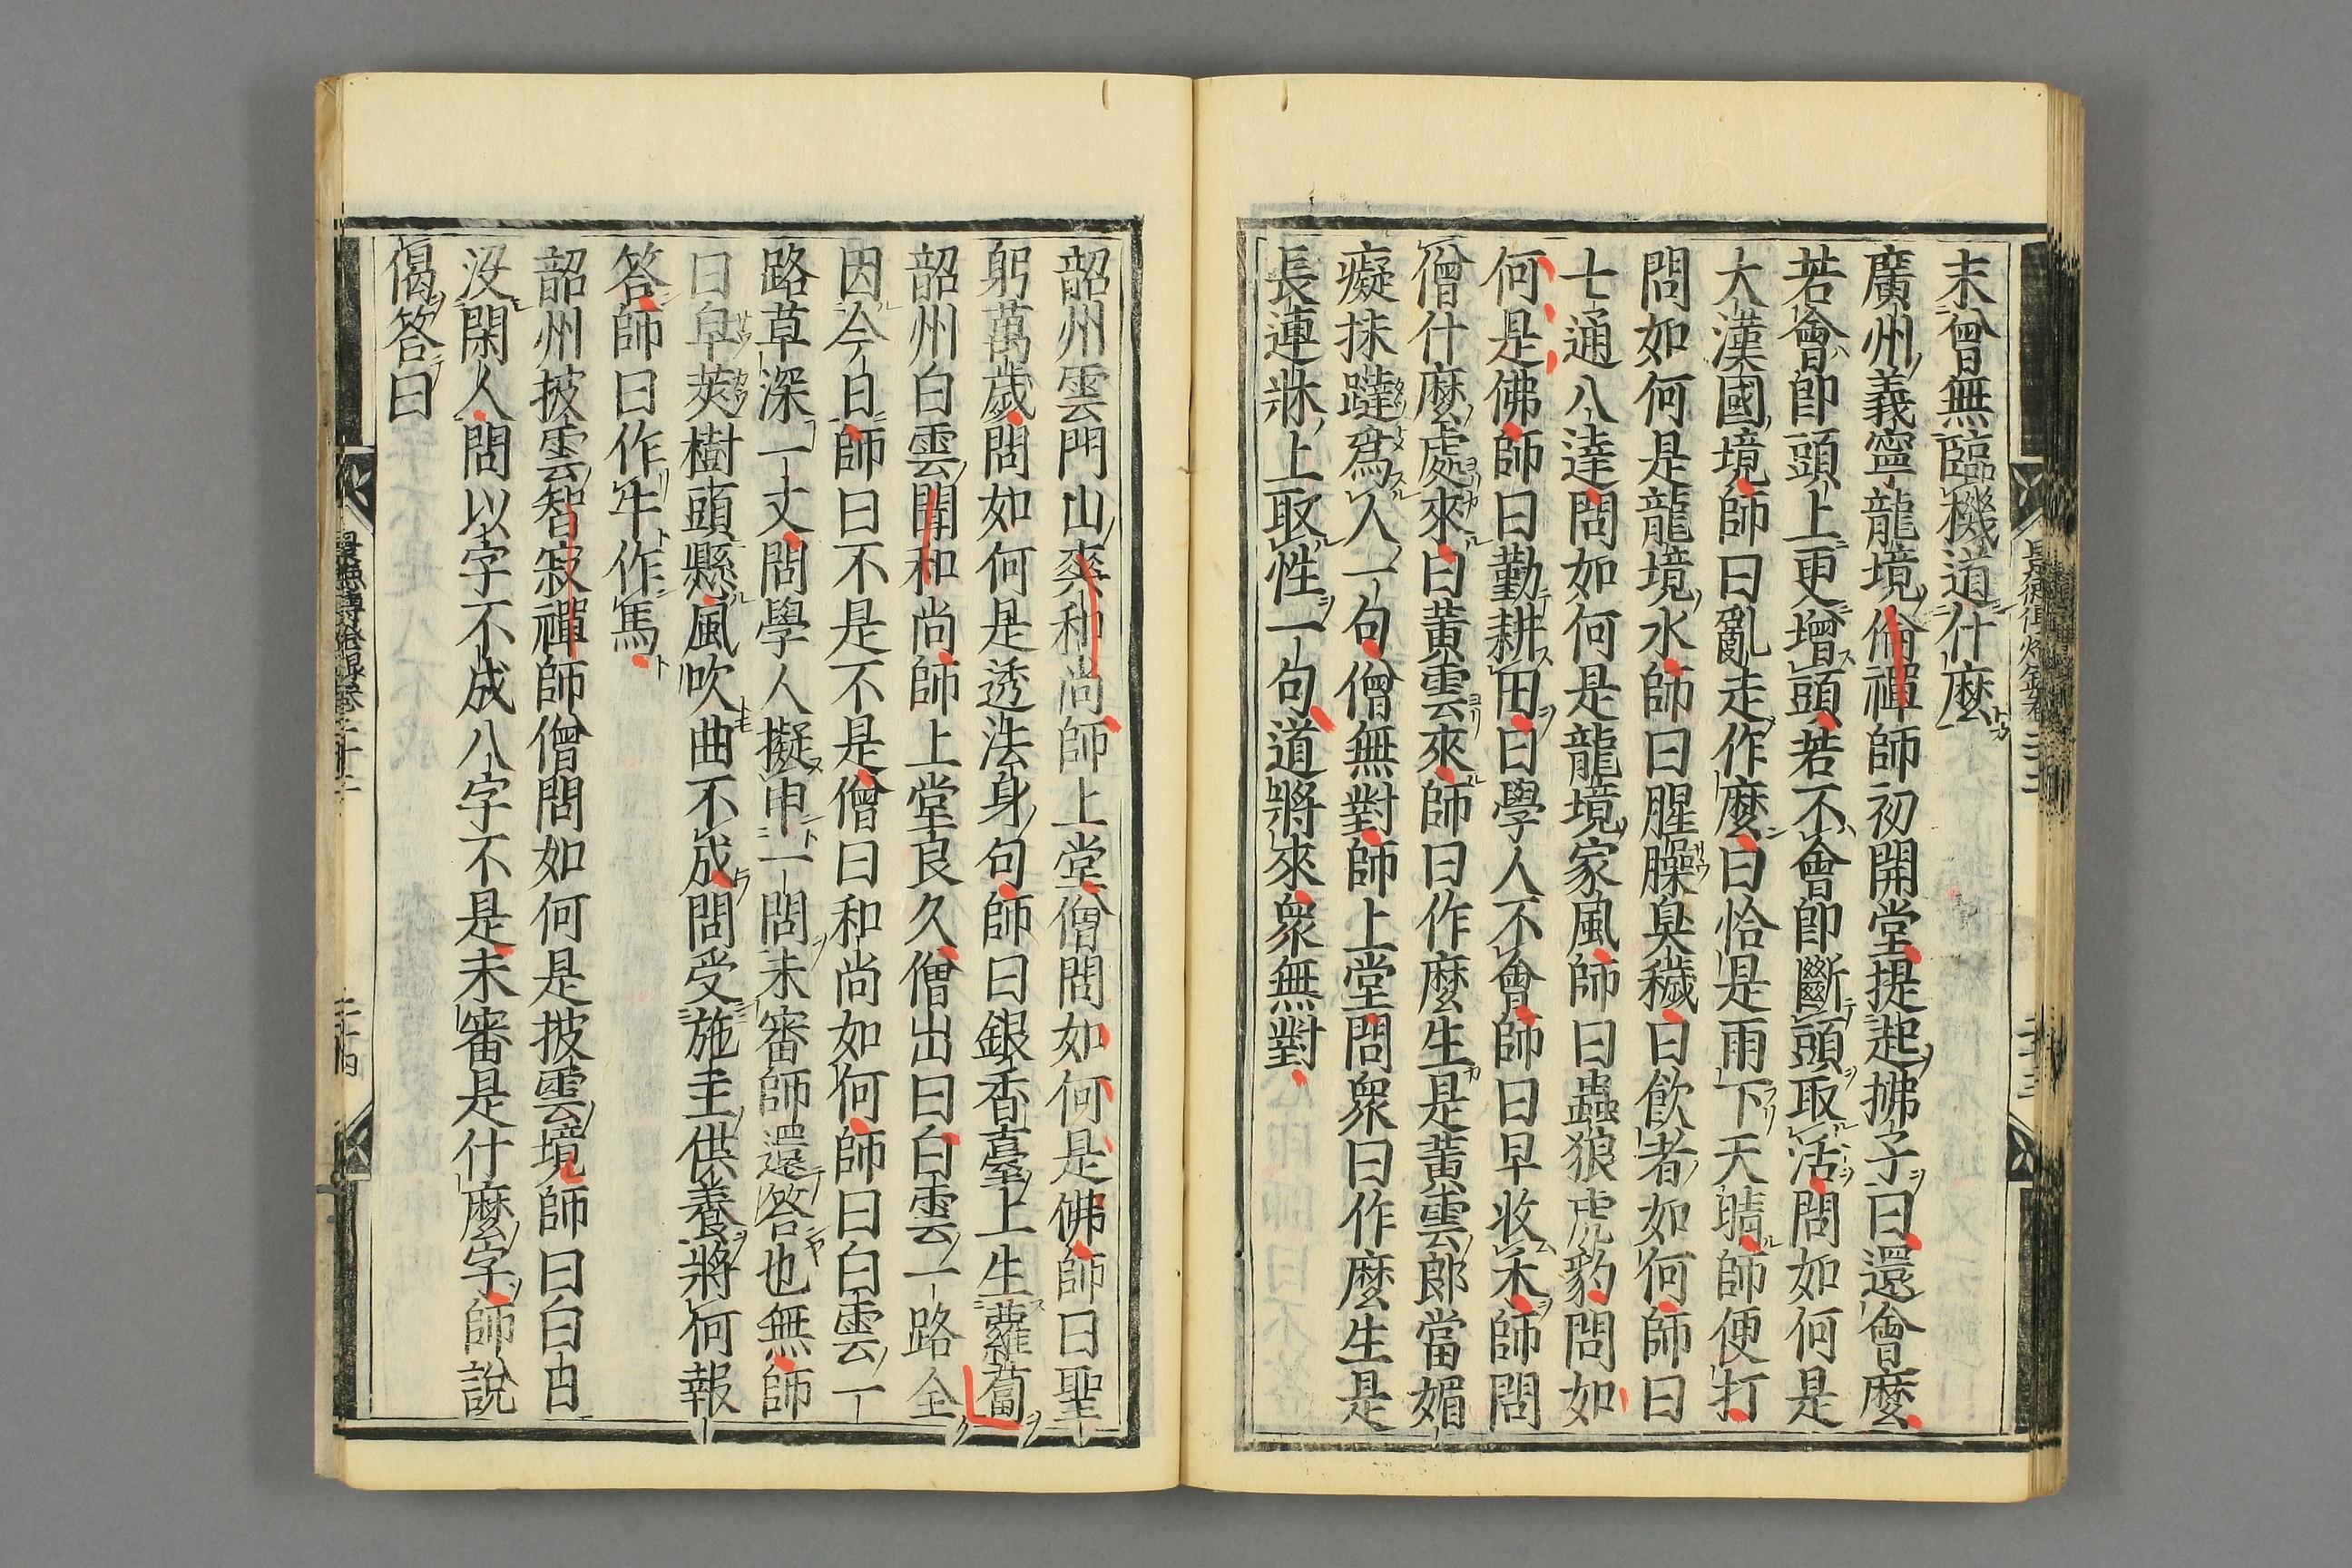 末曾無臨機道什麽
廣州義寧龍境倫禪師初開堂提起拂子曰還會麽
若會即頭上更增頭若不會即斷頭取活問如何是
大漢國境師曰亂走作麽曰恰是雨下天晴師便打
問如何是龍境水師曰腥臊臭穢曰飲者如何師曰
七通八達問如何是龍境家風師曰蟲狼虎豹問如
何是佛師曰勤耕田曰學人不會師曰早收禾師問
僧什麽處來曰黃雲來師曰作麽生是黃雲郎當媚
癡抹躂爲人一句僧無對師上堂問衆曰作麽生是
長連牀上取性一句道將來衆無對
韶州雲門山爽和尚師上堂僧問如何是佛師曰聖
躬萬歲問如何是透法身句師曰銀香臺上生蘿蔔
韶州白雲聞和尚師上堂良久僧出曰白雲一路全
因今日師曰不是不是僧曰和尚如何師曰白雲一
路草深一丈問學人擬申一問未審師還答也無師
曰皁莢樹頭懸風吹曲不成問受施主供養將何報
答師曰作牛作馬
韶州披雲智寂禪師僧問如何是披雲境師曰白日
沒閑人問以字不成八字不是未審是什麽字師說
偈答曰
景德傳燈録卷二十二
二十四